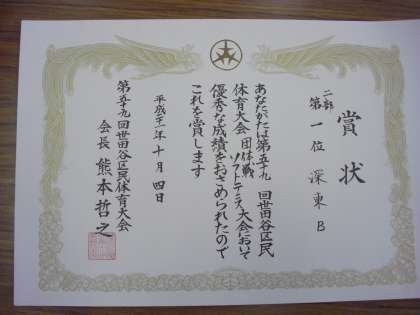 賞状
二部
第一位 深東B
あなたがたは第五十九回世田谷区民
体育大会 団体戦
ソフトテニス大会において
優秀な成績をおさめられたので
これを賞します
平成二十一年十月四日
第五十九回世田谷区民体育大会
会長 熊本哲之